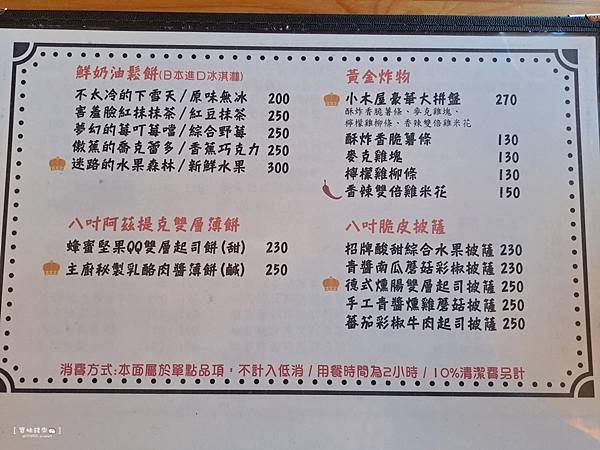 鮮奶油鬆餅(日本進口冰淇淋)
不太冷的下雪天/原味無冰 200
害羞臉紅抹抹茶/紅豆抹茶 250
夢幻的莓吖莓噹/綜合野莓 250
傲蕉的喬克蕾多/香蕉巧克力 250
迷路的水果森林/新鮮水果 300
八吋阿茲提克雙層薄餅
蜂蜜堅果QQ雙層起司餅(甜) 230
主廚祕製乳酪肉醬薄餅(鹹) 250
黃金炸物
小木屋豪華大拼盤 270
酥炸香脆薯條、麥克雞塊、
檸檬雞柳條、香辣雙倍雞米花
酥炸香脆薯條 130
麥克雞塊 130
檸檬雞柳條 130
香辣雙倍雞米花 150
八吋脆皮披薩
招牌酸甜綜合水果披薩 230
青醬南瓜蘑菇彩椒披薩 230
德式燻腸雙層起司披薩 250
手工青醬燻雞蘑菇披薩 250
蕃茄彩椒牛肉起司披薩 250
消費方式:本面屬於單點品項,不計入低消/用餐時間為2小時/10%清潔費另計